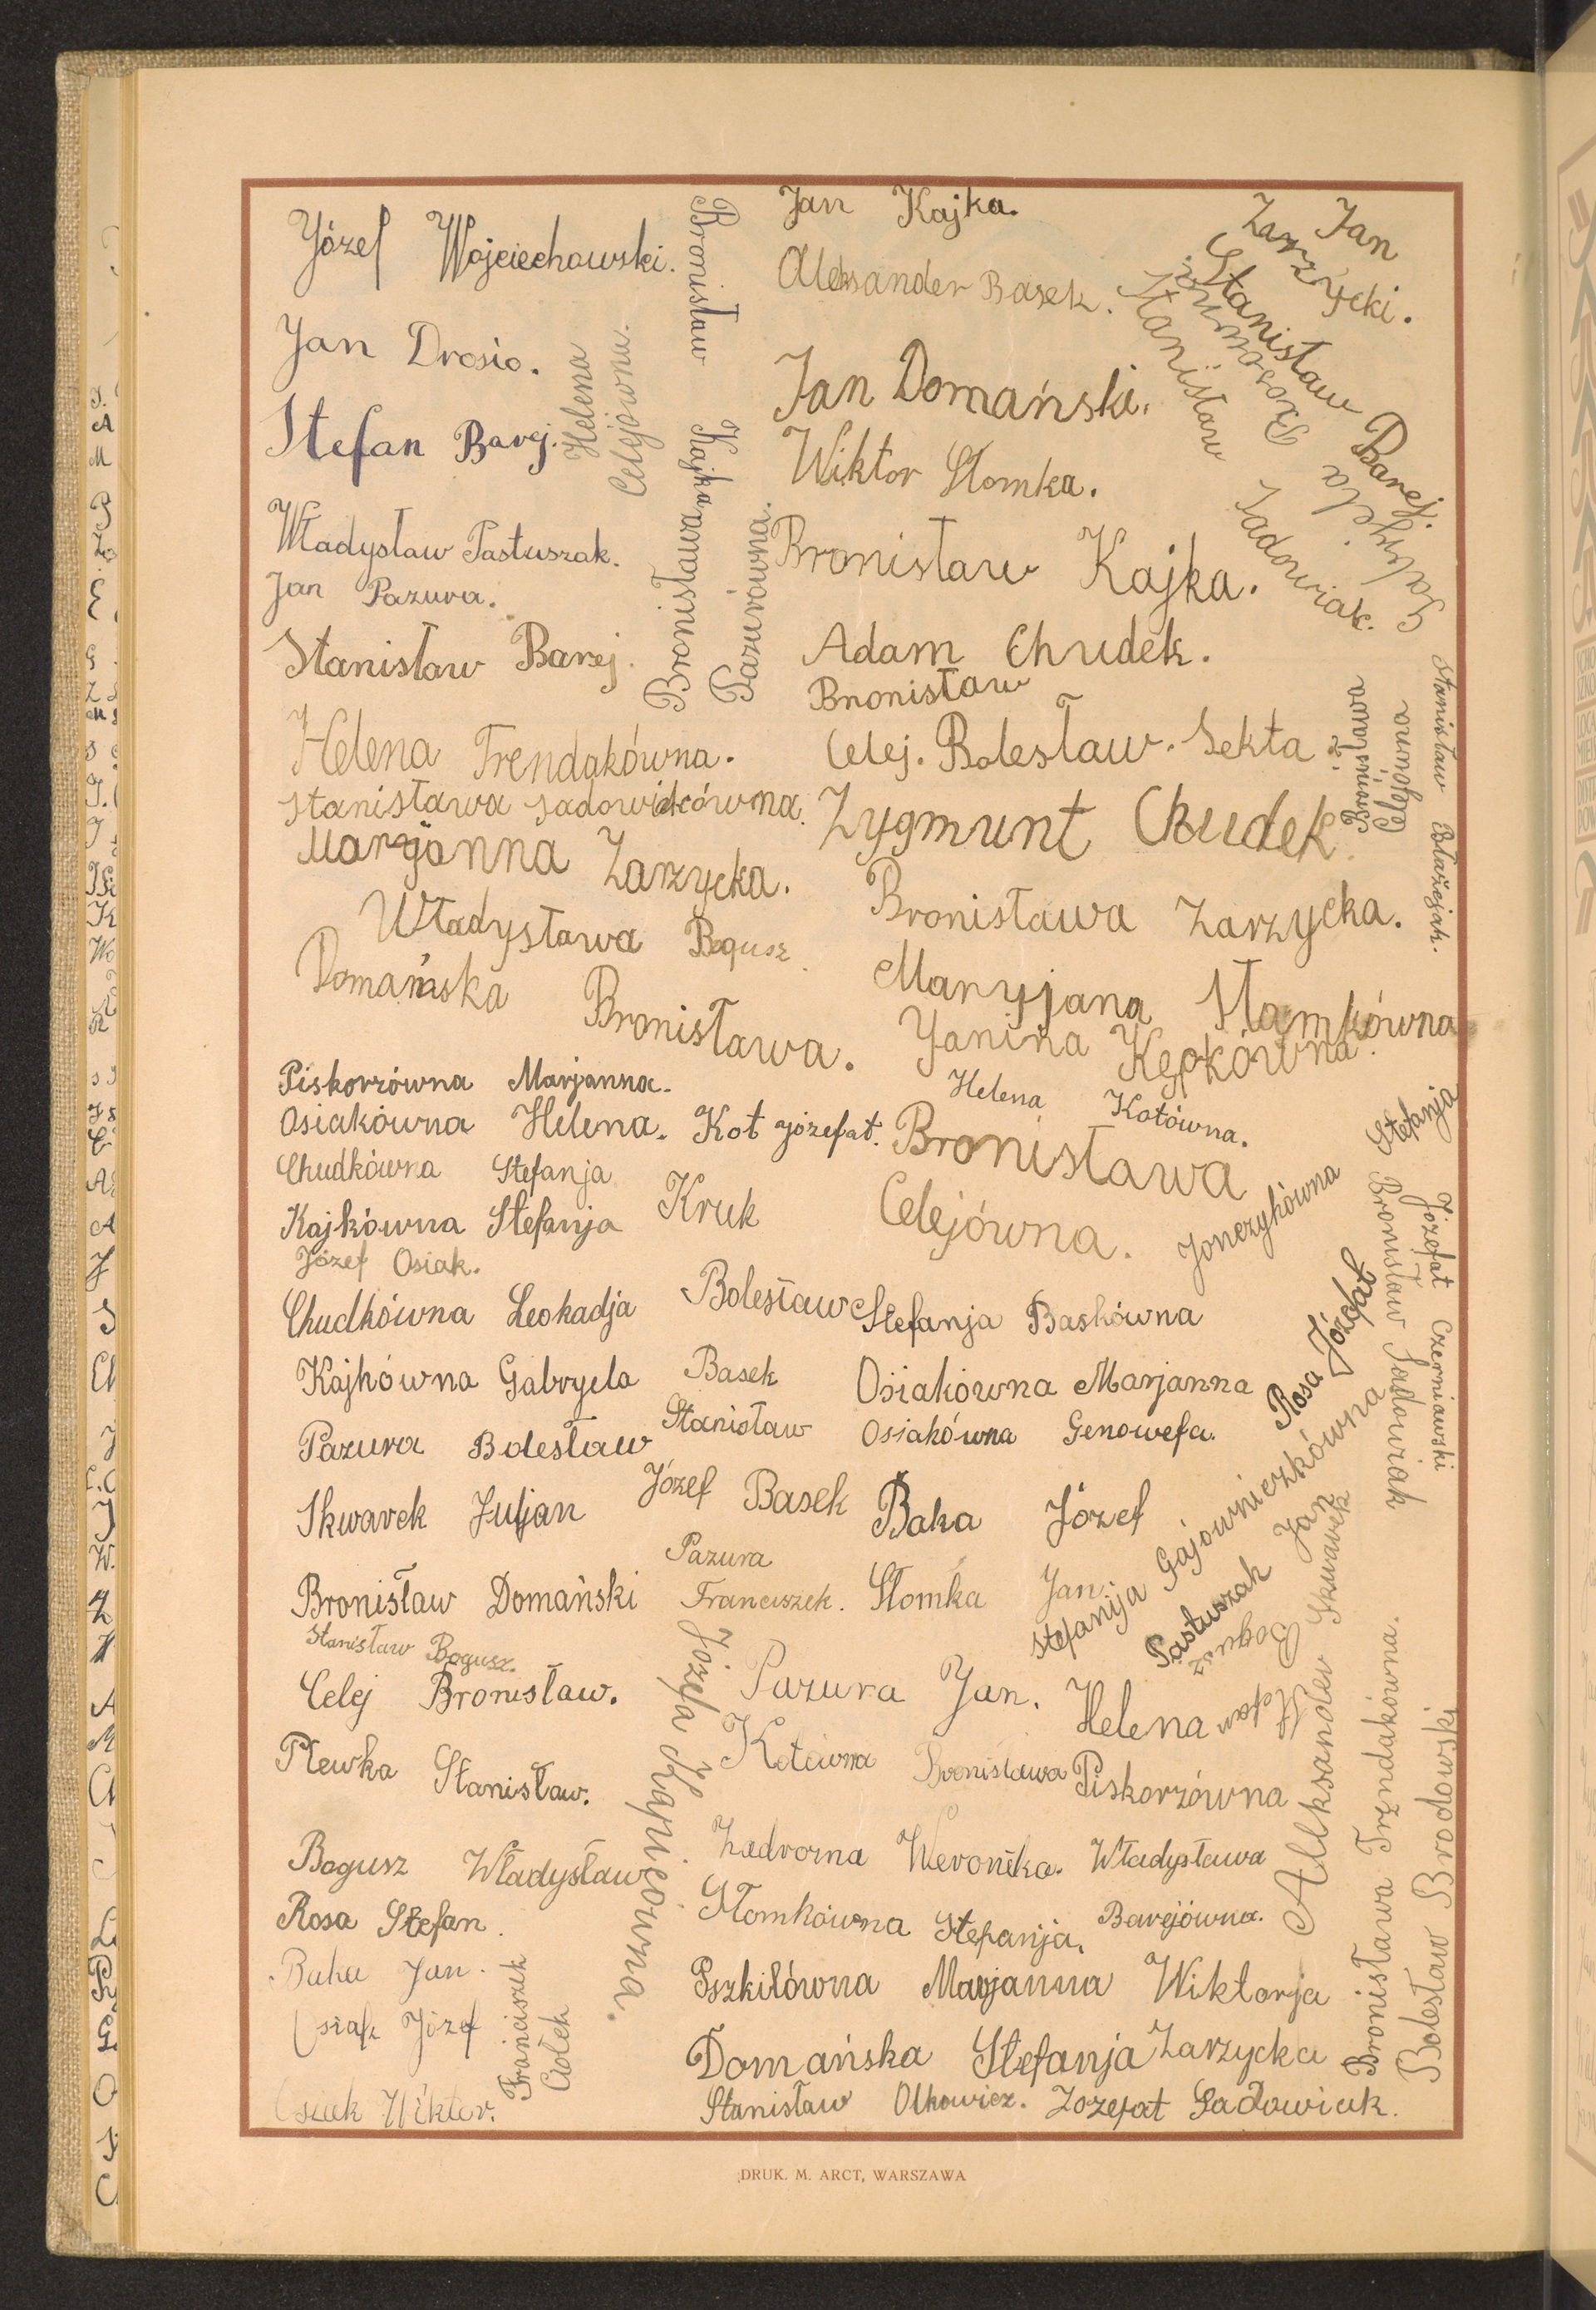 Józef Wojciechowski.
Jan Drosio.
Stefan Barej.
Helena
Celejówna.
Władysław Pastuszak.
Jan Pazura.
Stanisław Barej.
Bronisław Kajka
Bronisława
Pazurówna.
Helena Trendakówna.
Stanisława Sadowiakówna.
Marzjanna Zarzycka.
Władysława Bogusz.
Domańska Bronisława.
Piskorzówna Marjanna.
Osiakówna Helena.
Kot Józefat.
Chudkówna Stefanja
Kajkówna Stefanja
Józef Osiak.
Kruk
Bolesław
Chudkówna Leokadja
Kajkówna Gabryela
Basek
Stanisław
Pazura Bolesław
Józef Basek
Skwarek Juljan
Pazura
Franciszek.
Bronisław Domański
Stanisław Bogusz.
Celej Bronisław.
Plewka Stanisław.
Bogusz Władysław
Rosa Stefan.
Baka Jan.
Osiak Józef
Franciszek
Ciołek
Osiak Wiktor.
Józefa
Jan Kajka.
Aleksander Basek.
Jan Domański.
Wiktor Słomka.
Bronisław Kajka.
Adam Chudek.
Bronisław
Celej. Bolesław. Sekta
Zygmunt Chudek.
Bronisława Zarzycka.
Maryjana Słamkówna
Janina Kępkówna.
Helena Kotówna.
Bronisława
Celejówna.
Stefanja Baskówna
Osiakówna Marjanna
Osiakówna Genowefa.
Baka Józef
Słomka Jan.
Pazura Jan.
Kotówna Bronisława
Helena
Piskorzówna
Zadworna Weronika.
Władysława
Barejówna.
Słomkówna Stefanja.
Pszkiłówna Marjanna
Wiktorja
Zarzycka
Domańska Stefanja
Stanisław Olkowicz. Jozefat Sadowiak.
Jan
Zarzycki.
Stanisław Barej.
Stanisław Sadowiak.
Bronisława
Celejówna
Stanisław Błażejak.
Stefanja
Józefat Czerniawski
Bronisław Sadowiak
Rosa Józefat
Stefanija Gajowniczkówna
Pastuszak Jan
Bogusz
Stefan
Aleksander Skwarek
Bronisława Trzndakówna.
Bolesław Brodowski
DRUK. M. ARCT, WARSZAWA